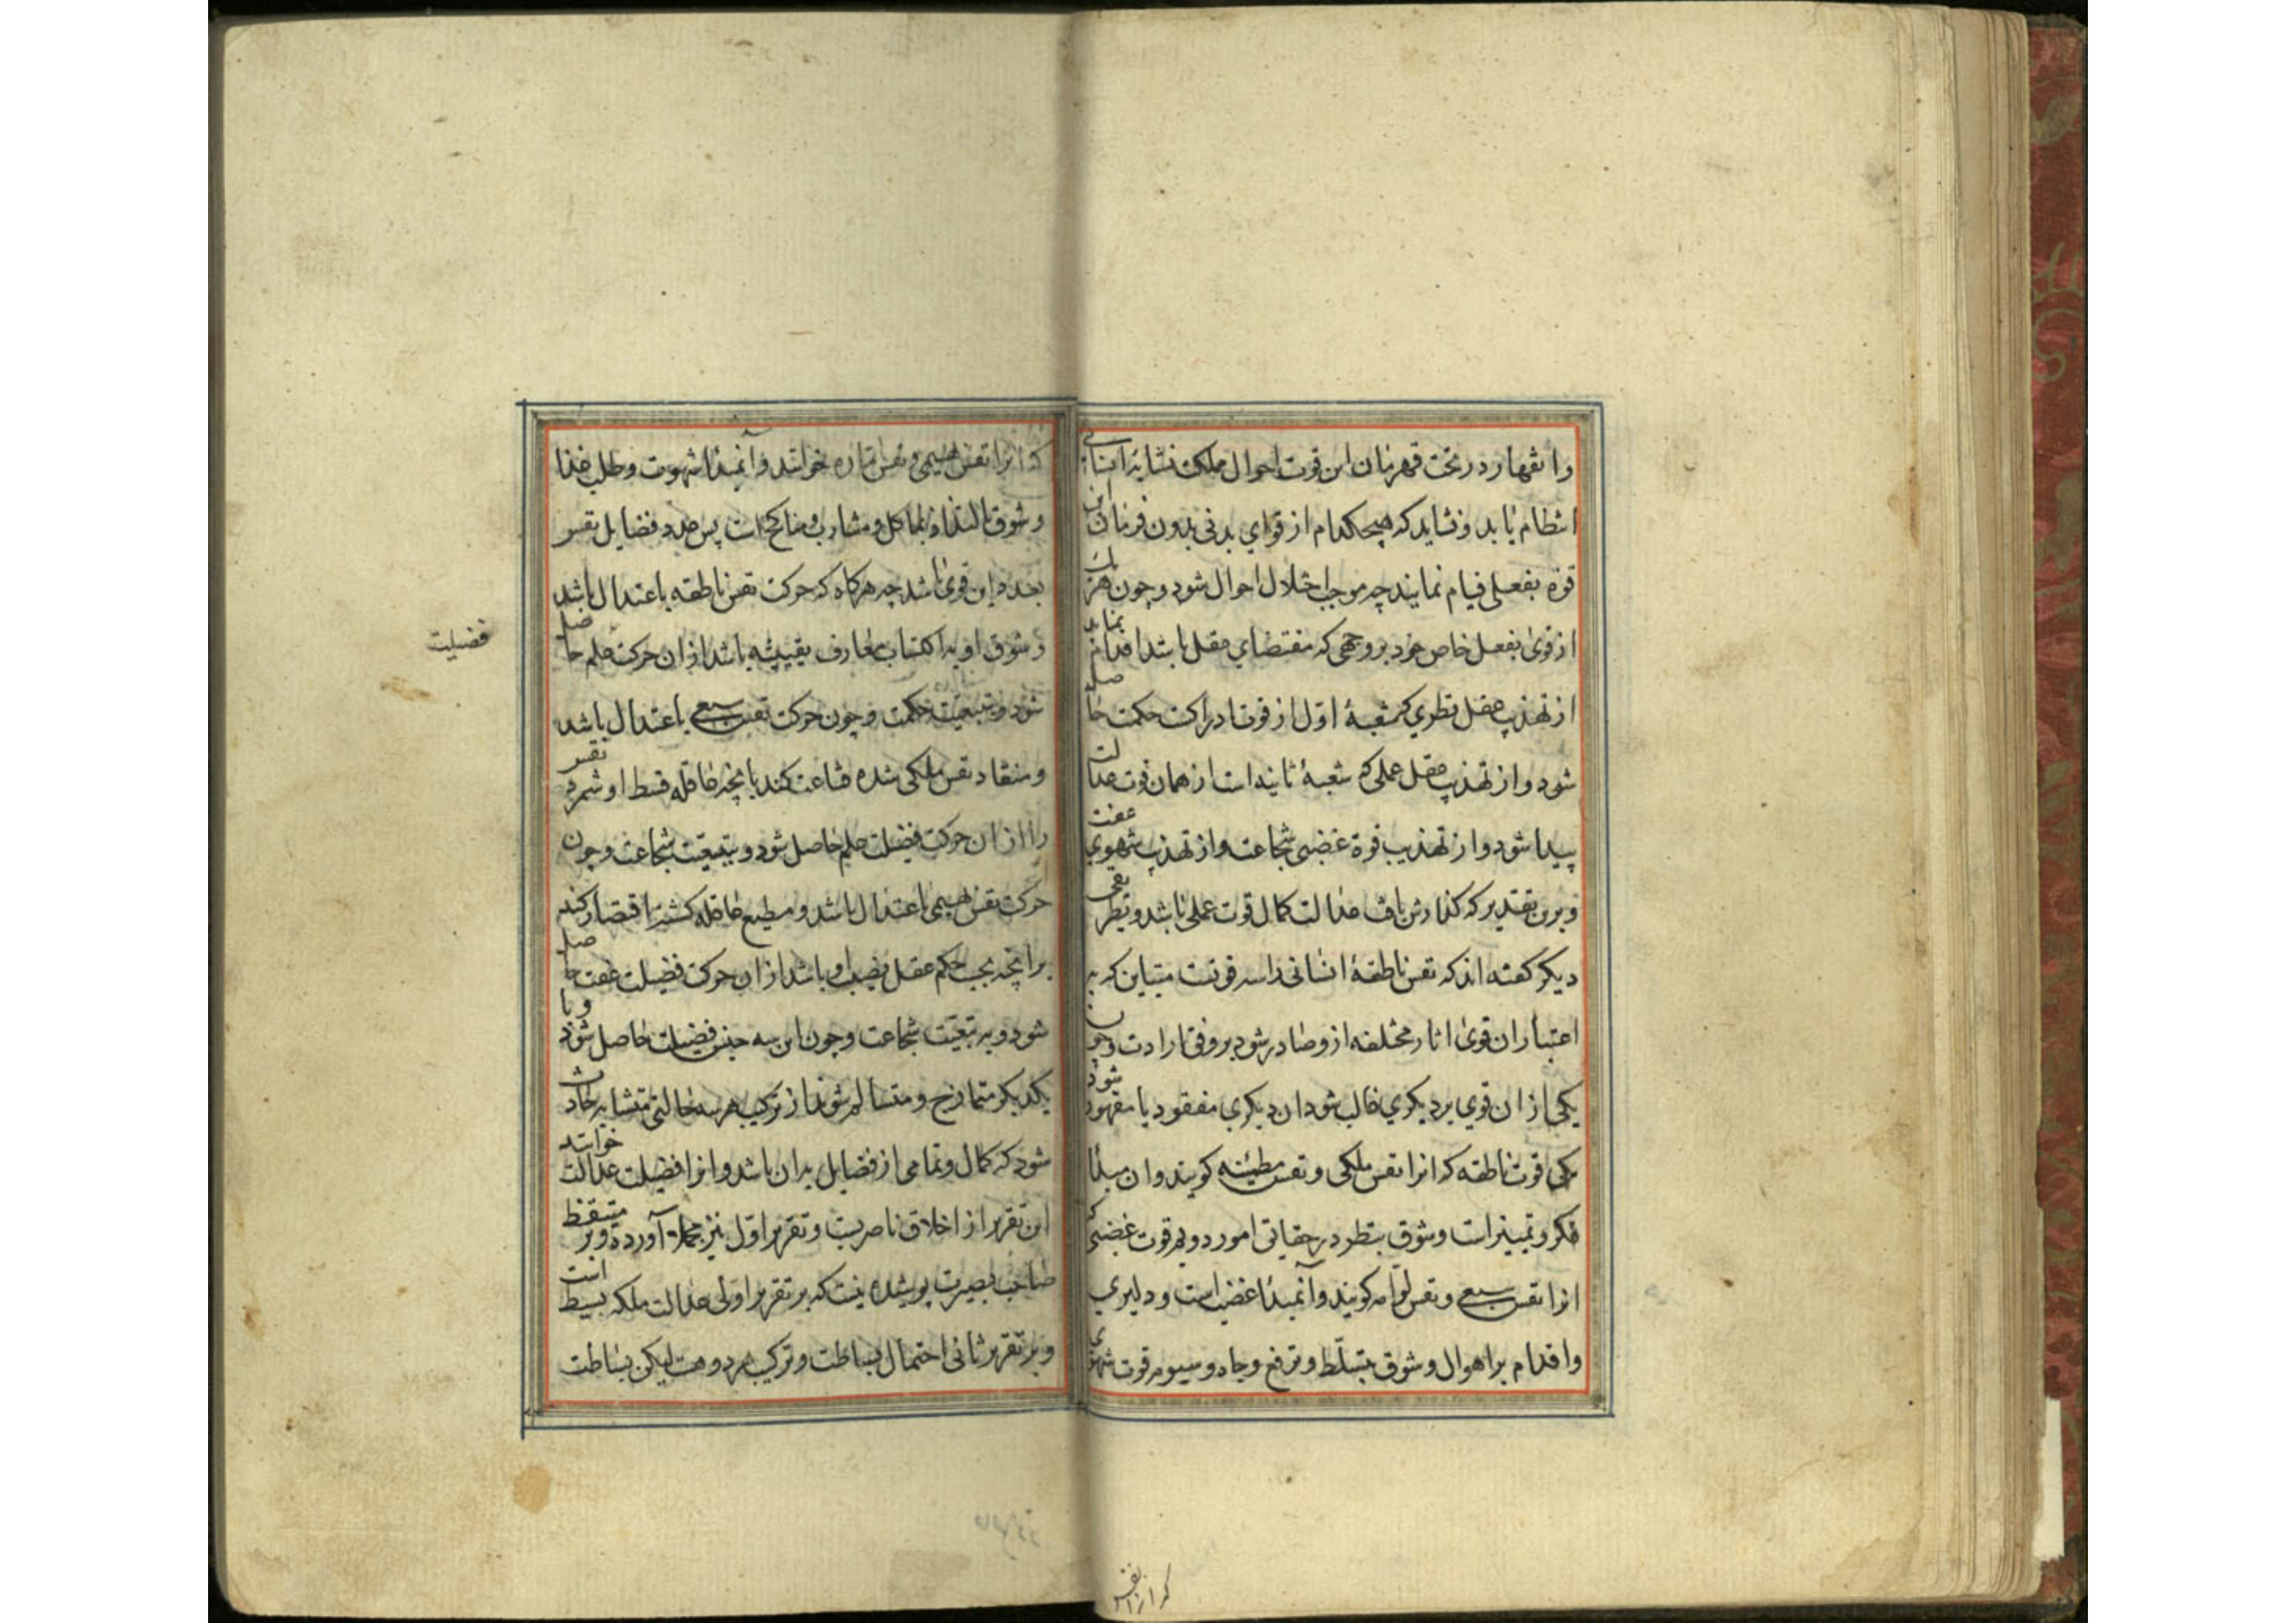 وانقهار در تحت قهرمان این قوت احوال مملکت نشایهٔ انسانی
انتظام یابد و نشاید که هیچکدام از قوای بدنی بدون فرمان این
قوة بفعلی قیام نمایند چه موجب اختلال احوال شود و چون هر یک
از قوی بفعل خاص خود بر وجهی که مقتضای عقل باشد اقدام نماید
از تهذیب عقل نظری که شعبهٔ اول از قوت ادراکست حکمت حاصل
شود و از تهذیب عقل عملی که شعبهٔ ثانیه است از همان قوت عدالت
پیدا شود و از تهذیب قوة غضبی شجاعت و از تهذیب شهوی عفت
و برین تقدیر که گذارش یافت عدالت کمال قوت عملی باشد و بطریقی
دیگر گفته اند که نفس ناطقهٔ انسانی را سه قوتست متباین که به
اعتبار ان قوی اثار مختلفه ازو صادر شود بر وفق ارادت و چون
یکی از ان قوی بر دیگری غالب شود ان دیگری مفقود یا مقهور شود
یکی قوت ناطقه که انرا نفس ملکی و نفس مطمئنه گویند و ان مبدأ
فکر و تمییز است و شوق بنظر در حقایق امور دویم قوت غضبی که
انرا نفس سبعی و نفس لوامه گویند و آنمبدأ غضب است و دلیری
و اقدام بر اهوال و شوق بتسلط و ترفع و جاه و سیوم قوت شهوی
که انرا نفس بهیمی و نفس اماره خوانند و آنمبدأ شهوت و طلب غذا
و شوق بالتذاذ بماکل و مشارب و مناکح است پس عدد فضایل نفس
بعدد این قوی باشد چه هرگاه که حرکت نفس ناطقه باعتدال باشد
و شوق او به اکتساب معارف یقینیه باشد از ان حرکت علم حاصل
شود و بتبعیت حکمت و چون حرکت نفس سبعی باعتدال باشد
و منقاد نفس ملکی شده قناعت کند بانچه عاقله قسط او شمرد نفس
را از ان حرکت فضیلت حلم حاصل شود و بتبعیت شجاعت و چون
حرکت نفس بهیمی باعتدال باشد و مطیع عاقله گشته اقتصار کند
بر انچه بحسب حکم عقل نصیب او باشد از ان حرکت فضیلت عفت حاصل
شود و به تبعیت شجاعت و چون این سه جنس فضیلت حاصل شود و با
یکدیگر متمازج و متسالم شوند از ترکیب هر سه حالتی متشابه حادث
شود که کمال و تمامی از فضایل بدان باشد و انرا فضیلت عدالت خوانند
این تقریر از اخلاق ناصریست و تقریر اول نیز مجملا آورده و بر متیقظ
صاحب بصیرت پوشیده نیست که بر تقریر اولی عدالت ملکه بسیط است
و بر تقریر ثانی احتمال بساطت و ترکیب هر دو هست لیکن بساطت
فضیلت
که انرا نفس